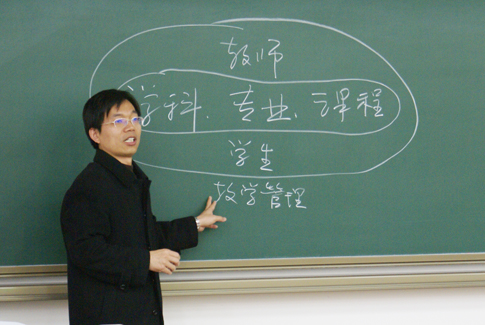 教师
学科、专业、课程
学生
教学管理